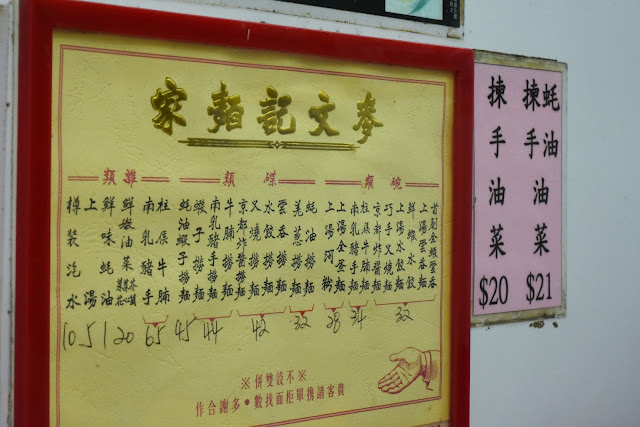 麥文記麵家
碗類
首創全蝦雲吞
上湯雲吞麵
鮮蝦水餃
上湯水餃麵
巧手叉燒麵
京都炸醬麵
柱侯牛腩麵
南乳豬手麵
上湯全蛋麵
上湯河粉
32
34
28
碟類
蚝油撈麵
羌葱撈麵
雲吞撈麵
水餃撈麵
叉燒撈麵
京都炸醬撈麵
牛腩撈麵
南乳豬手撈麵
蝦子撈麵
蚝油蝦子撈麵
32
42
44
45
雜類
柱侯牛腩
南乳豬手
鮮嫩油菜
鮮味蚝油
上湯
樽裝汽水
65
20
1
5
10
※不設雙併※
貴客請攜單柜面找數•多謝合作
蚝油
揀手油菜
$21
揀手油菜
$20